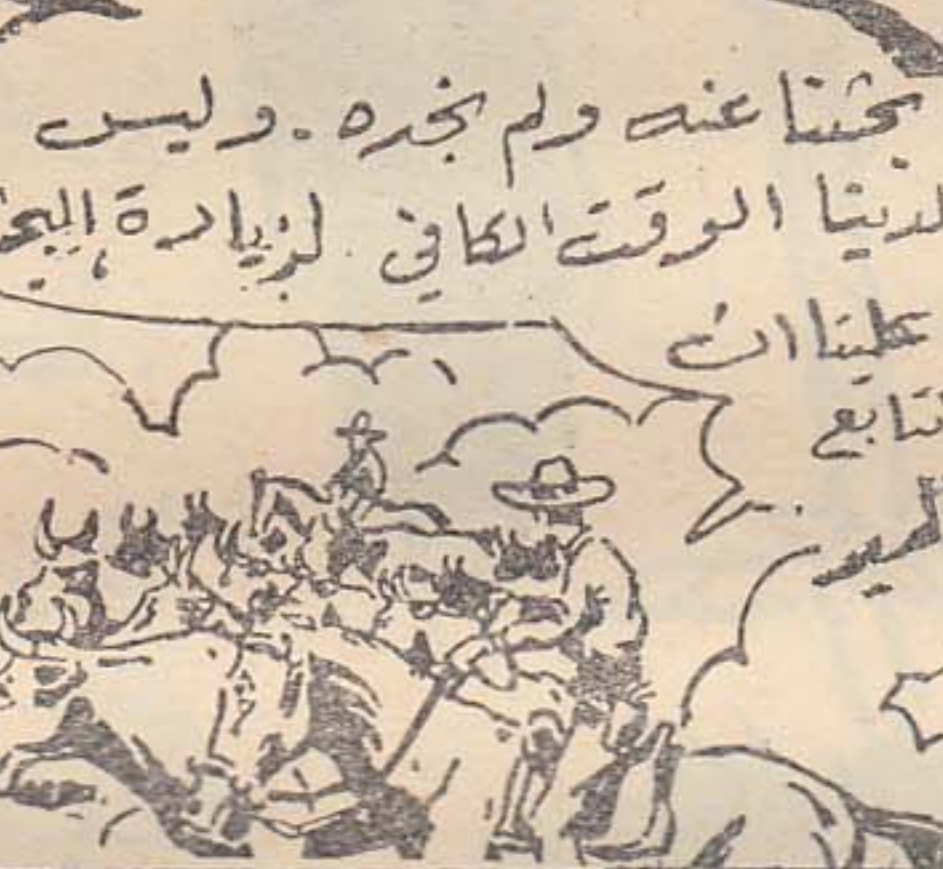 بحثنا عنه ولم نجده. وليس
لدينا الوقت الكافي لزيادة البحث
علينا ان
نتابع
السير